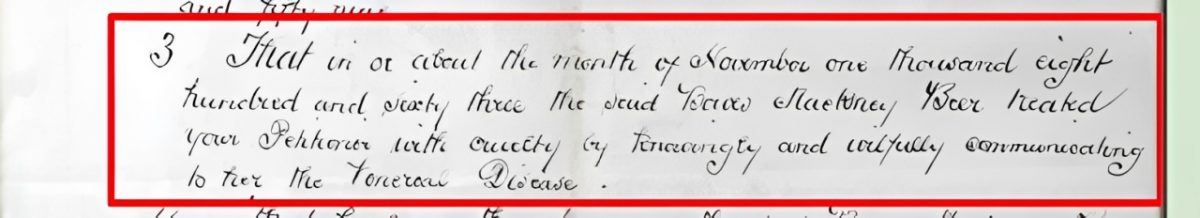 and fifty nine
3 That in or about the month of November one thousand eight
hundred and sixty three the said Beer treated
your Petitioner with cruelty by knowingly and wilfully communicating
to her the Venereal Disease .